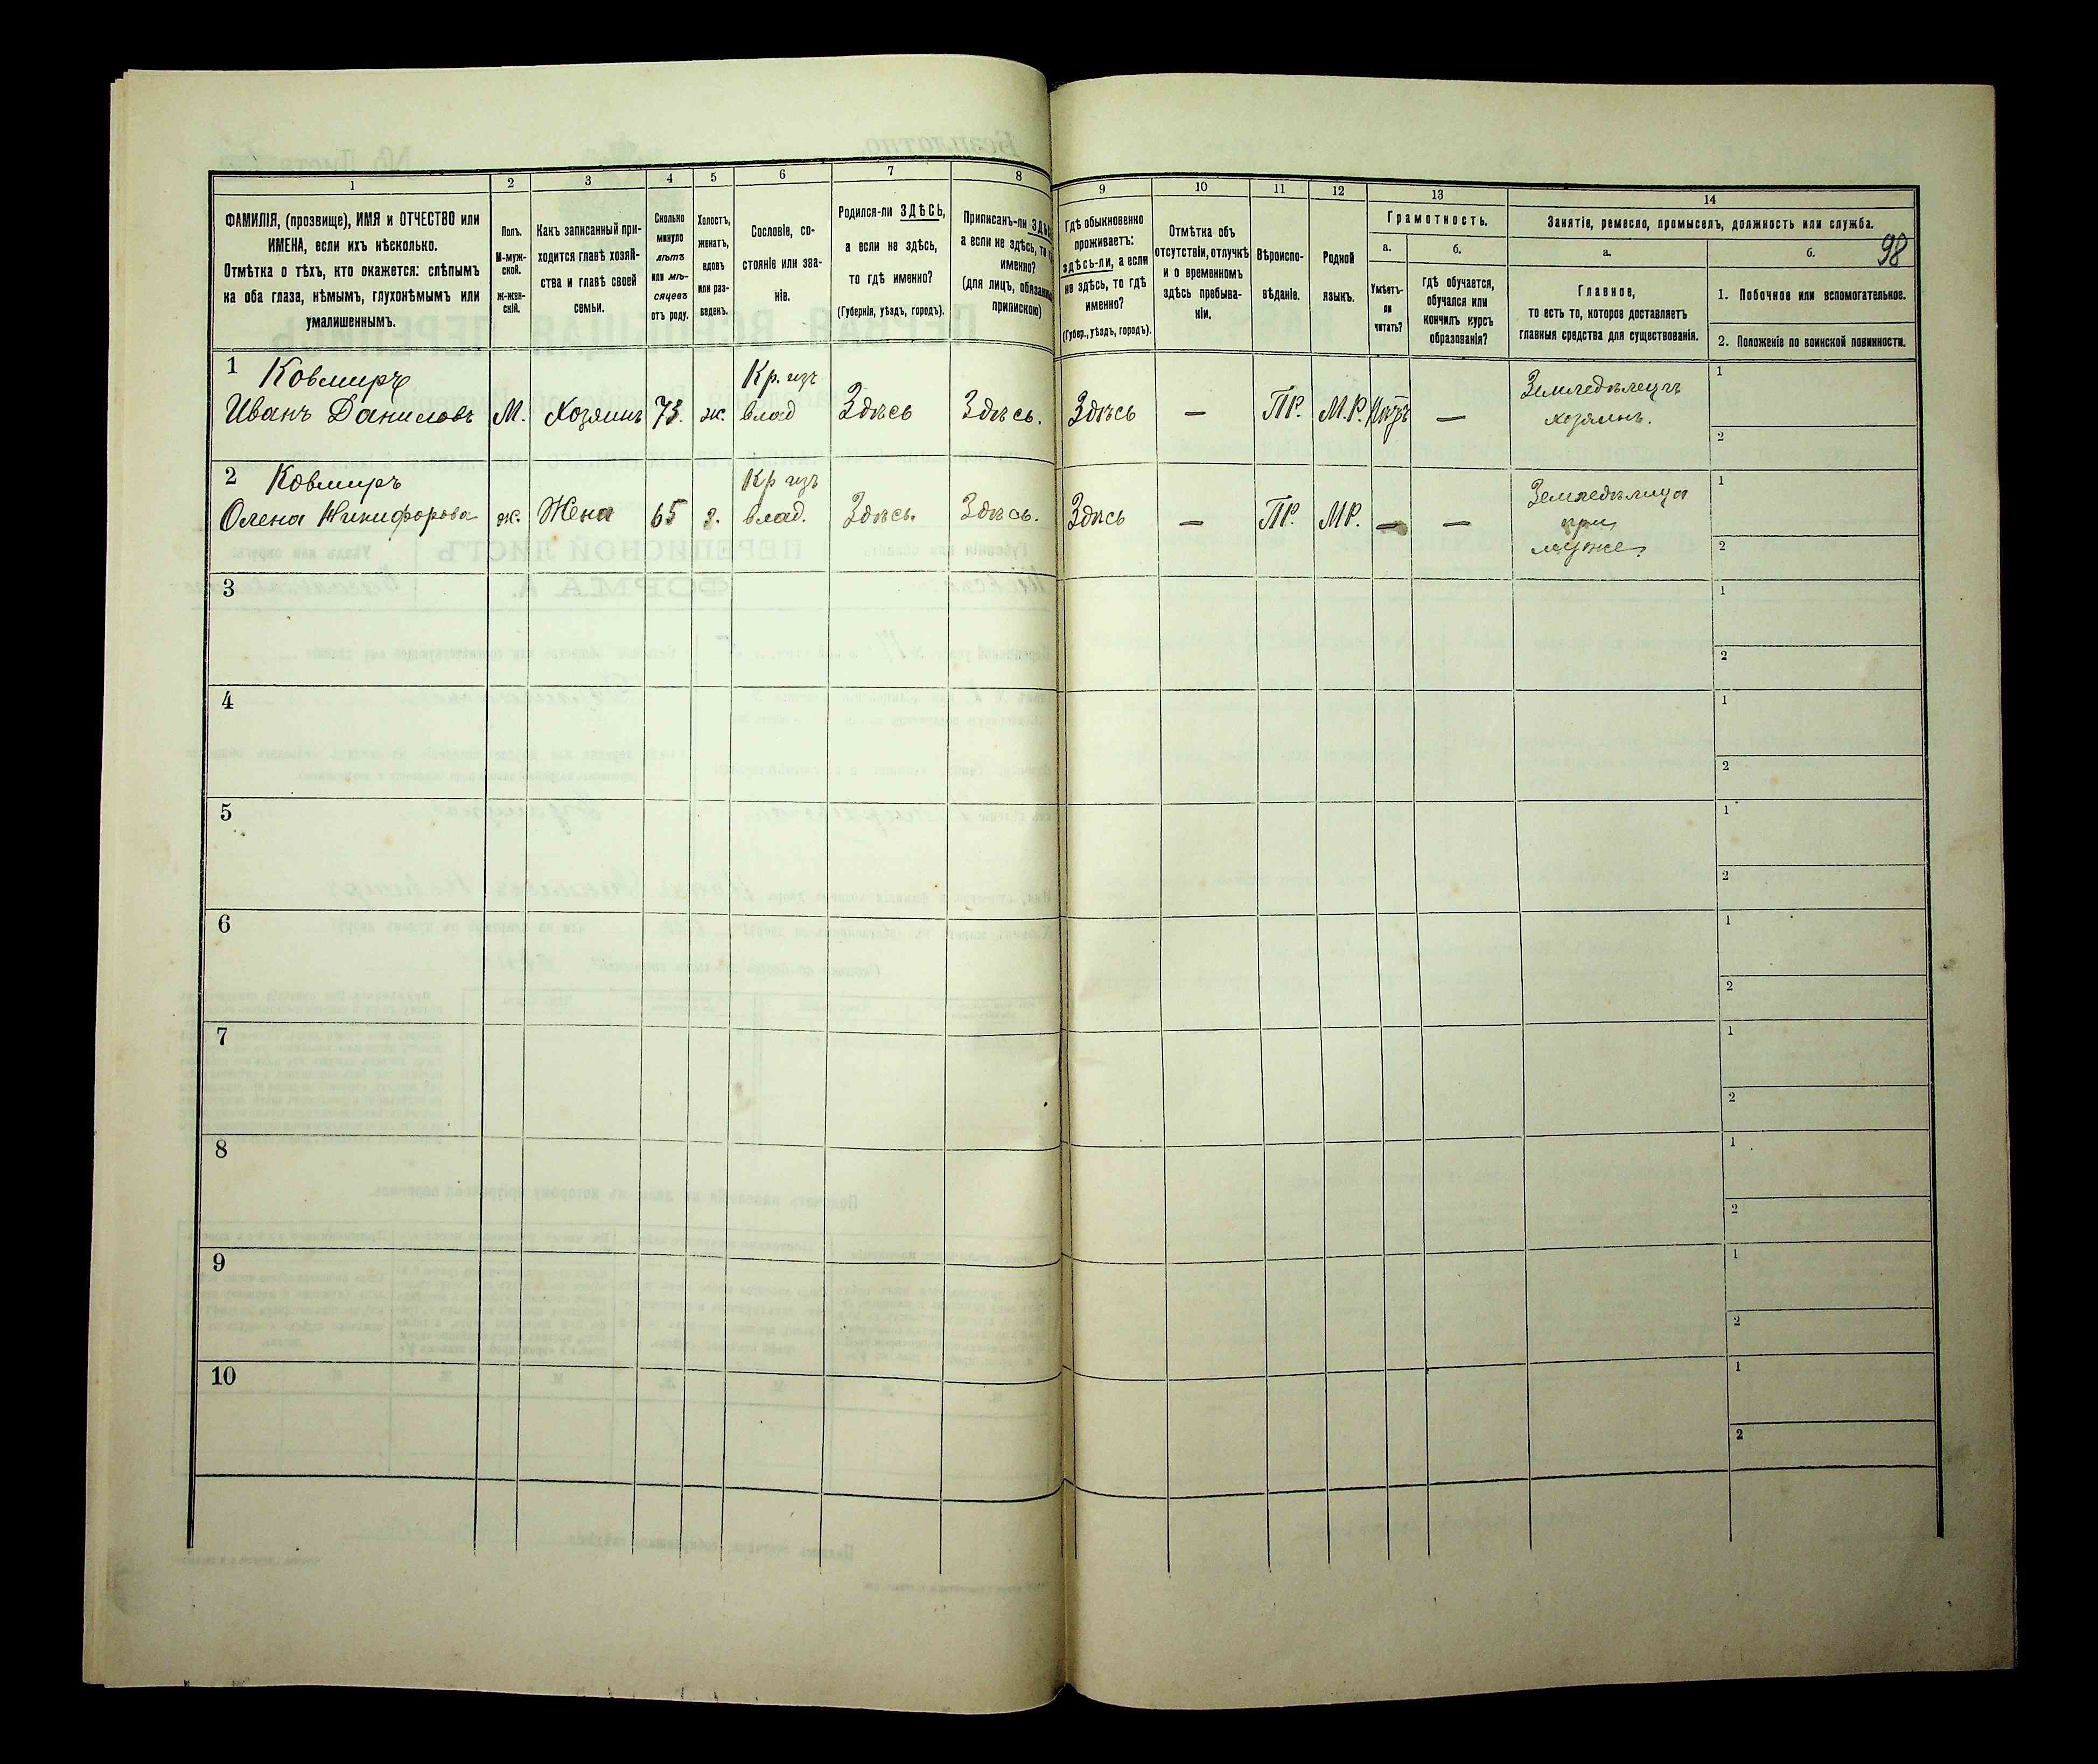 1
2
3
4
5
6
7
8
9
10
11
12
13
14
ФАМИЛІЯ, (прозвище), ИМЯ и ОТЧЕСТВО или
ИМЕНА, если ихъ нѣсколько.
Отмѣтка о тѣхъ, кто окажется: слѣпымъ
на оба глаза, нѣмымъ, глухонѣмымъ или
умалишеннымъ.
Полъ.
М-муж-
ской.
ж-жен-
скій.
Какъ записанный при-
ходится главѣ хозяй-
ства и главѣ своей
семьи.
Сколько
минуло
лѣтъ
или мѣ-
сяцевъ
отъ роду.
Холостъ,
женатъ,
вдовъ
или раз-
веденъ.
Сословіе, со-
стояніе или зва-
ніе.
Родился-ли ЗДѢСЬ,
а если не здѣсь,
то гдѣ именно?
(Губернія, уѣздъ, городъ).
Приписанъ-ли
а если не здѣсь, то
именно?
(для лицъ,
припискою)
Гдѣ обыкновенно
проживаетъ:
здѣсь-ли, а если
не здѣсь, то гдѣ
именно?
(Губер., уѣздъ, городъ).
Отмѣтка объ
отсутствіи, отлучкѣ
и о временномъ
здѣсь пребыва-
ніи.
Вѣроиспо-
вѣданіе.
Родной
языкъ.
Грамотность.
а.
б.
Умѣетъ-
ли
читать?
гдѣ обучается,
обучался или
кончилъ курсъ
образованія?
Занятіе, ремесло, промыселъ, должность или служба.
а.
б.
98
Главное,
то есть то, которое доставляетъ
главныя средства для существованія.
1. Побочное или вспомогательное.
2. Положеніе по воинской повинности.
1 Ковширъ Кр. изъ Земледѣлецъ 1
Иванъ Даниловъ М. Хозяинъ 73. ж. влад Здѣсь Здѣсь. Здѣсь — ПР. М.Р. — хозяинъ.
2
2 Ковширъ Кр изъ Земледѣлица 1
Олена Никифорова ж. Жена 65 з. влад. Здѣсь. Здѣсь. Здѣсь — ПР. МР. — — при
муже 2
3 1
2
4 1
2
5 1
2
6 1
2
7 1
2
8 1
2
9 1
2
10 1
2